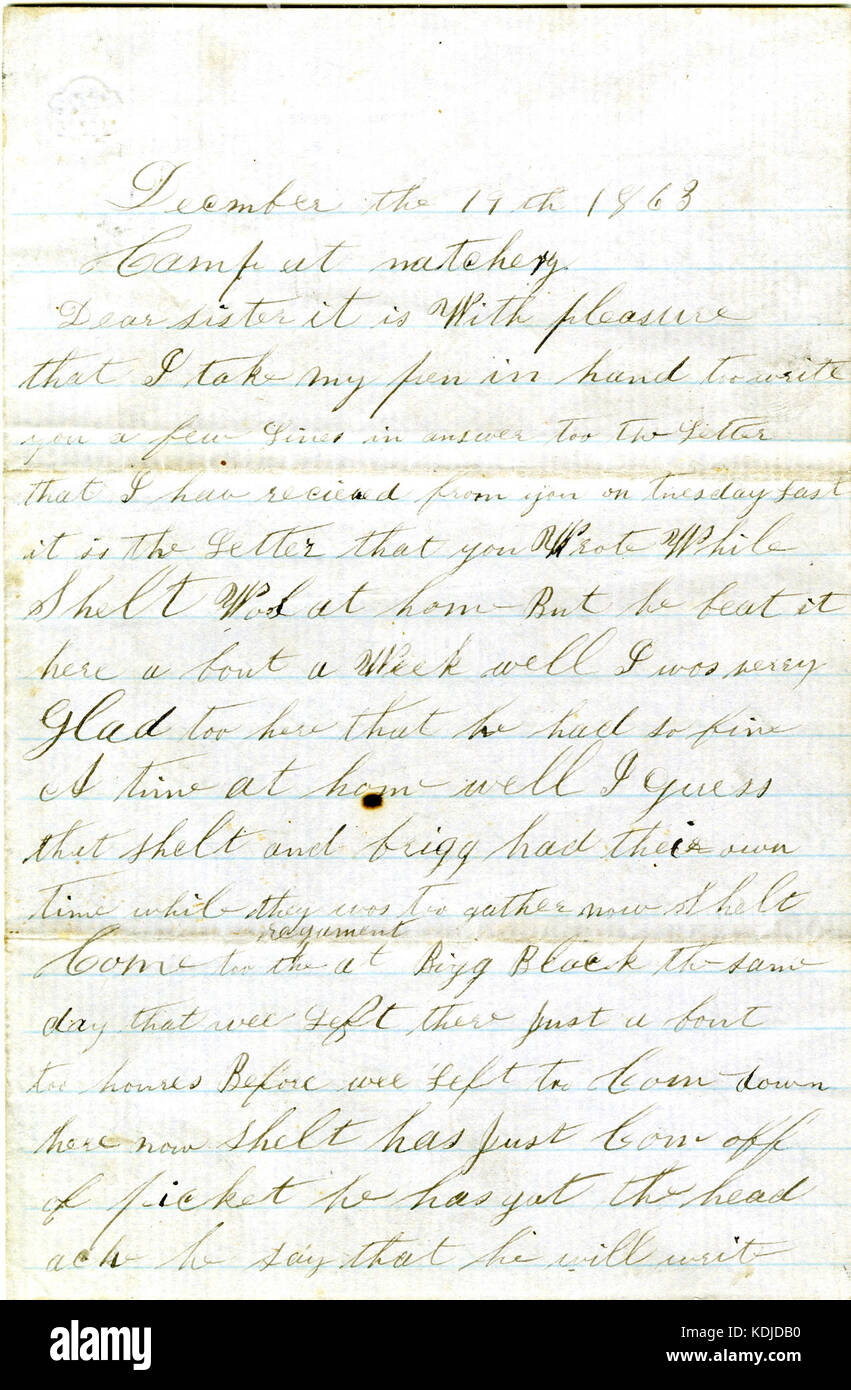 Decmber the 19th 1863
Camp at natchezy
Dear sister it is With pleasure
that I take my pen in hand too write
you a few Lines in answer too the Letter
that I hav recieved from you on tuesday Last
it is the Letter that you Wrote While
Shelt Was at home But he beat it
here a bout a Week well I was verry
Glad too here that he had so fine
A time at home well I guess
that shelt and brigg had their own
time while they was too gather now Shelt
regument
Come too the at Bigg Black the same
day that wee Left there Just a bout
too houres Before wee Left too Com down
here now shelt has Just Com off
of picket he has got the head
ache he say that he will write
alamy
Image ID: KDJDB0
www.alamy.com